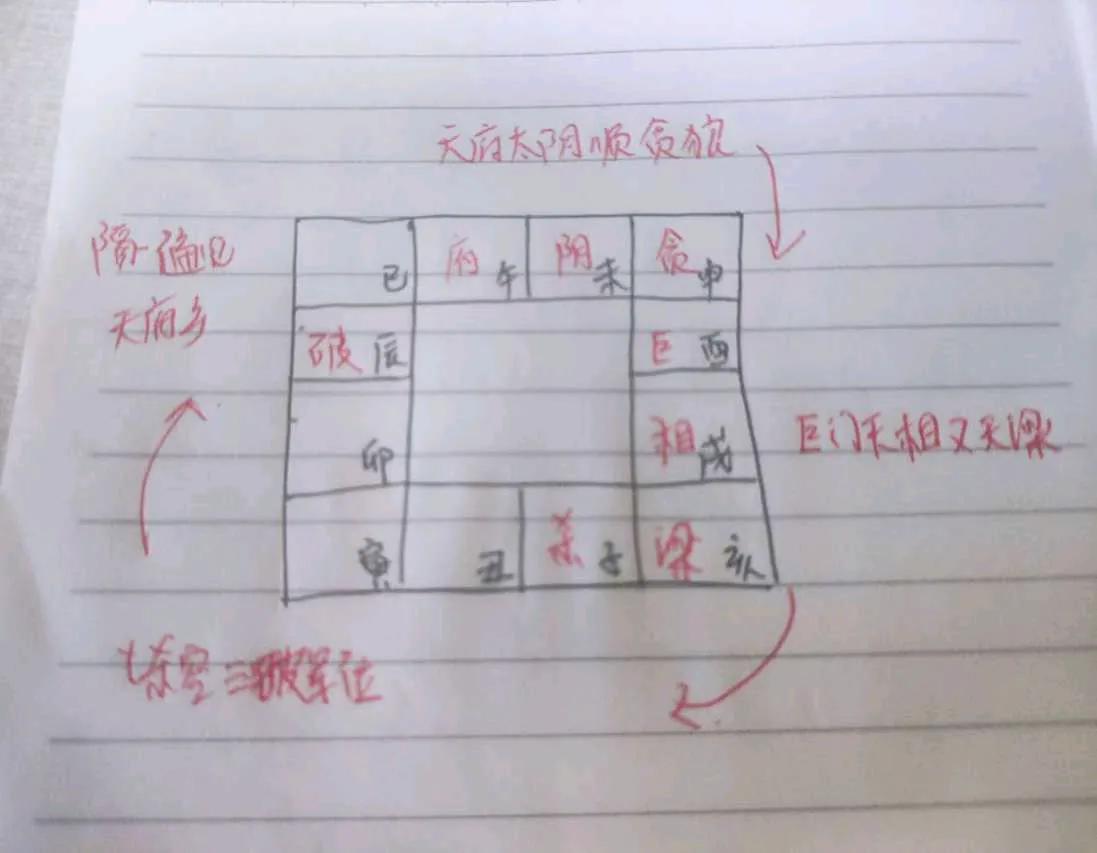 天府太阴顺贪狼
隔一逾见
天府乡
巳 府午 阴未 贪申
破辰 巨酉
卯 相戌
寅 丑 杀子 梁亥
巨门天相又天梁
七杀空三破军位